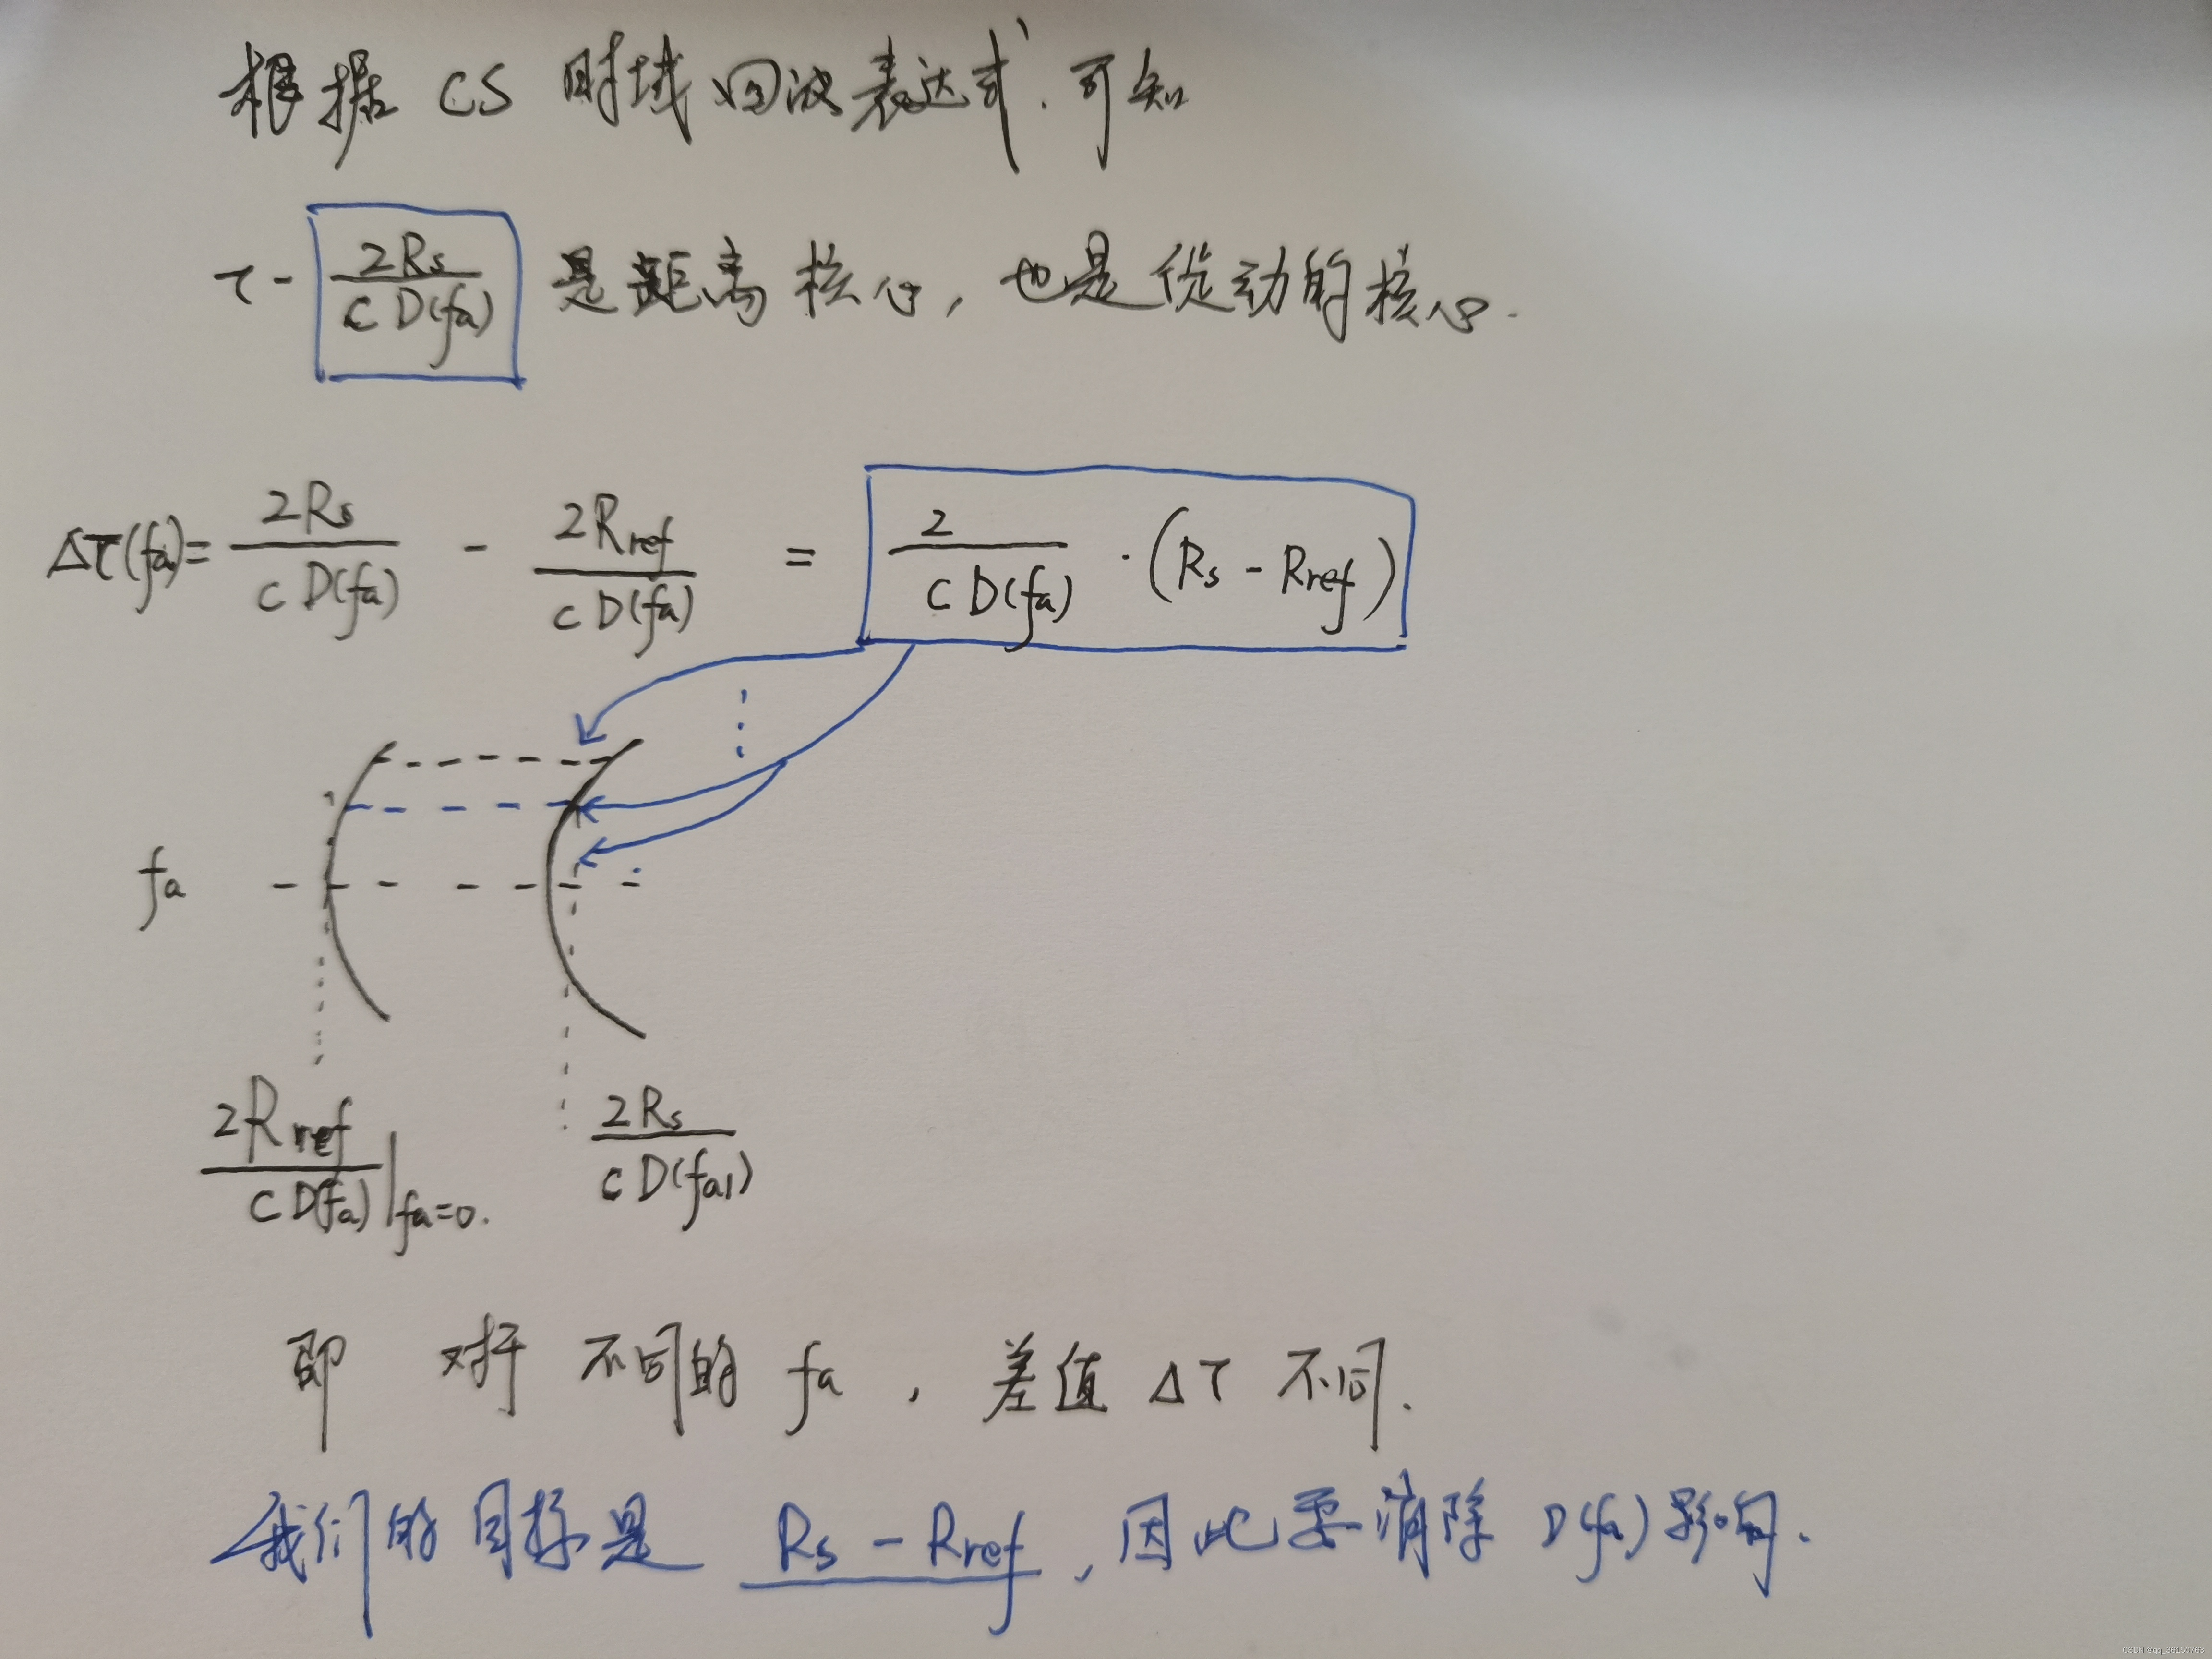 根据 CS 时域回波表达式,可知
τ - 2Rs / (c D(fa)) 是距离核心,也是徙动的核心.
Δτ(fa) = 2Rs / (c D(fa)) - 2Rref / (c D(fa)) = 2 / (c D(fa)) · (Rs - Rref)
fa
2Rref / (c D(fa)) | fa=0.
2Rs / (c D(fa1))
即 对于 不同的 fa , 差值 Δτ 不同.
我们的目标是 Rs - Rref , 因此要消除 D(fa) 影响.
CSDN @qq_36150763